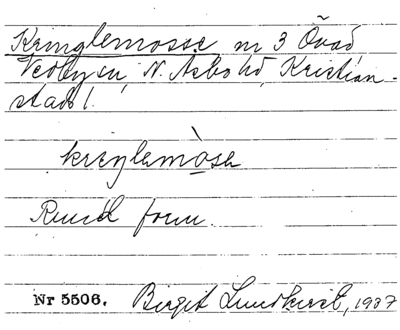 Kringlemosse nr 3 Övad
Verbysn, N. Åsbo hd, Kristian-
stads l.
kreŋlemòsa
Rund form.
Nr 5506. Birgit Lundkvist, 1937